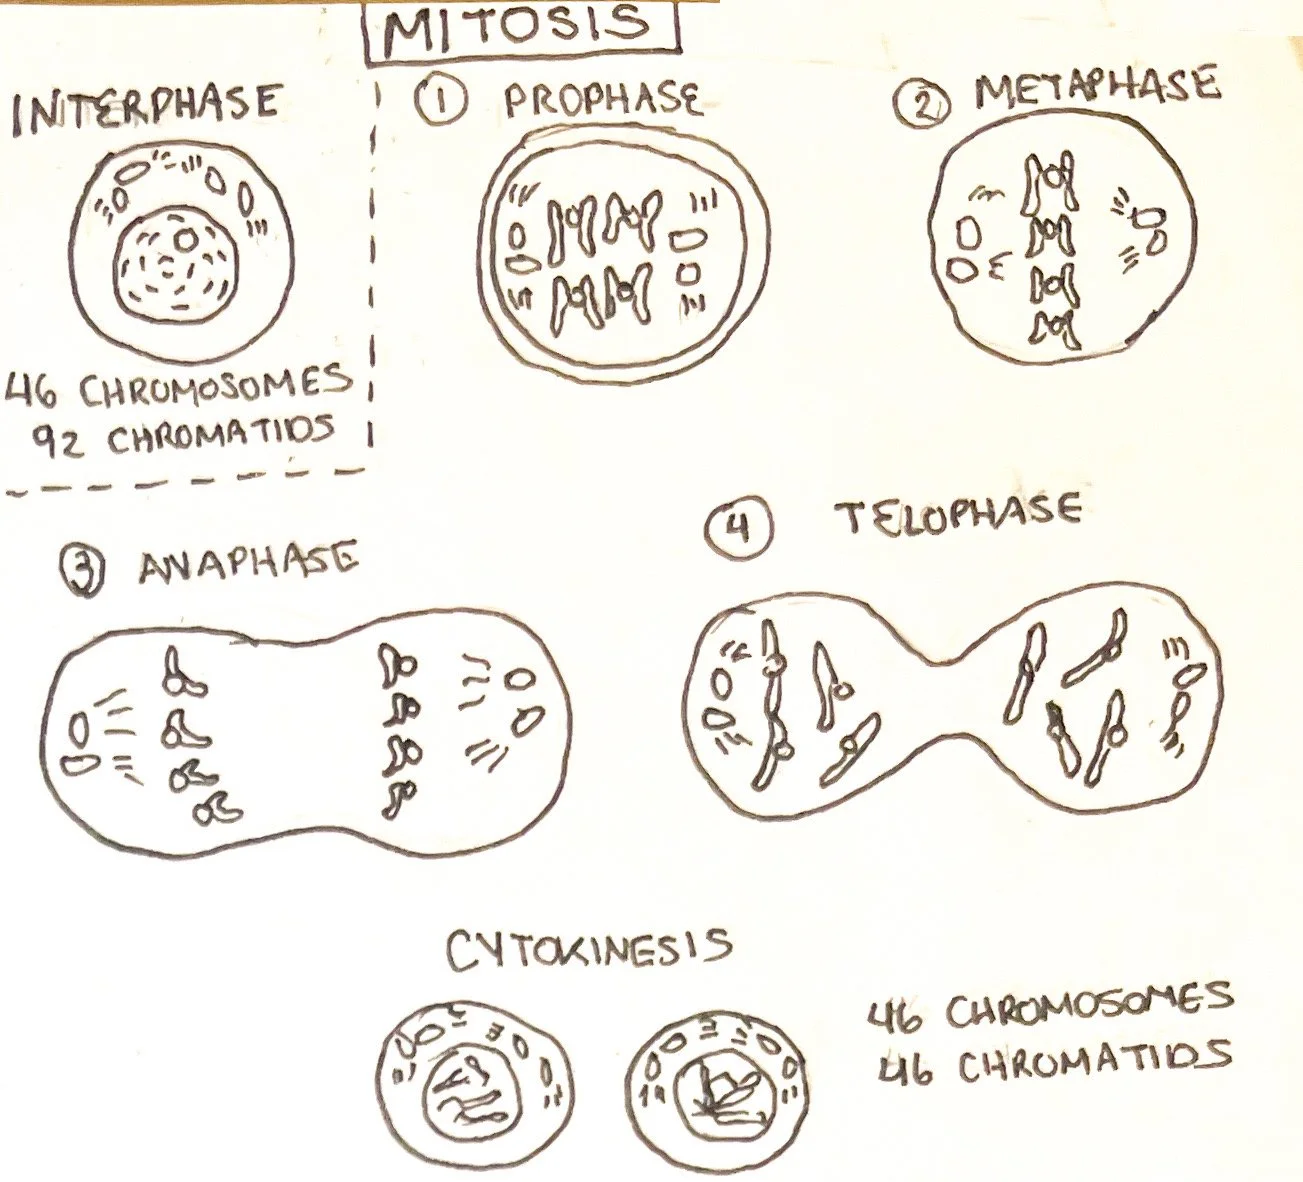 MITOSIS
INTERPHASE
46 CHROMOSOMES
92 CHROMATIDS
1 PROPHASE
2 METAPHASE
3 ANAPHASE
4 TELOPHASE
CYTOKINESIS
46 CHROMOSOMES
46 CHROMATIDS